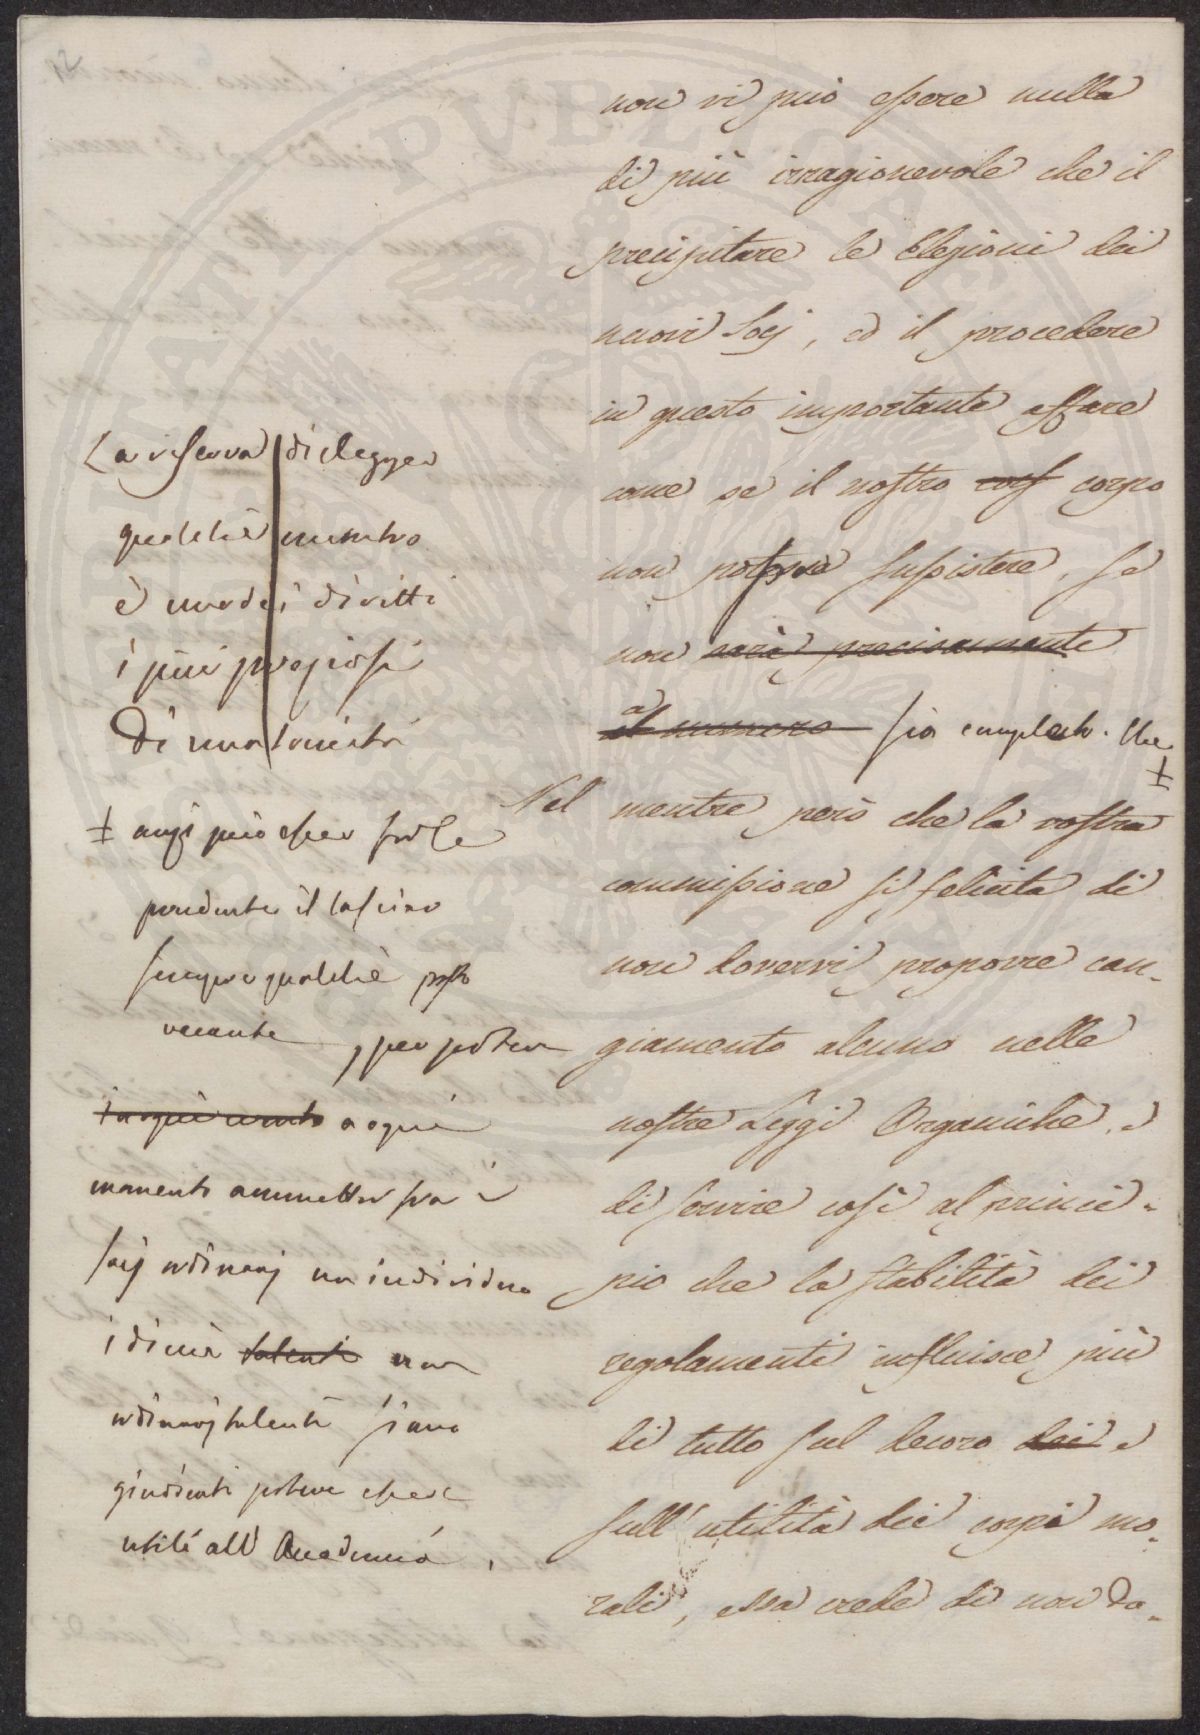 12
non vi può essere nulla
di più irragionevole che il
precipitare le Elezioni dei
nuovi Socj, ed il procedere
in questo importante affare
come se il nostro corpo
non potesse sussistere, se
non sarà precisamente
al numero sia completo. Che
‡
Nel mentre però che la vostra
commissione si felicita di
non dovervi proporre can-
giamento alcuno nelle
nostre Leggi Organiche, e
di servire così al princi-
pio che la stabilità dei
regolamenti influisce più
di tutto sul decoro dei e
sull'utilità dei corpi mo-
rali, essa crede di non do-
La riserva di elegger
qualche membro
è uno dei diritti
i più preziosi
di una società
‡ anzi può esser forse
prudente il lasciar
sempre qualche posto
vacante, per poter
in ogni evento a ogni
momento ammetter fra i
socij ordinarj un individuo
i di cui talenti non
ordinarj talenti siano
giudicati potere essere
utili all'Accademia.